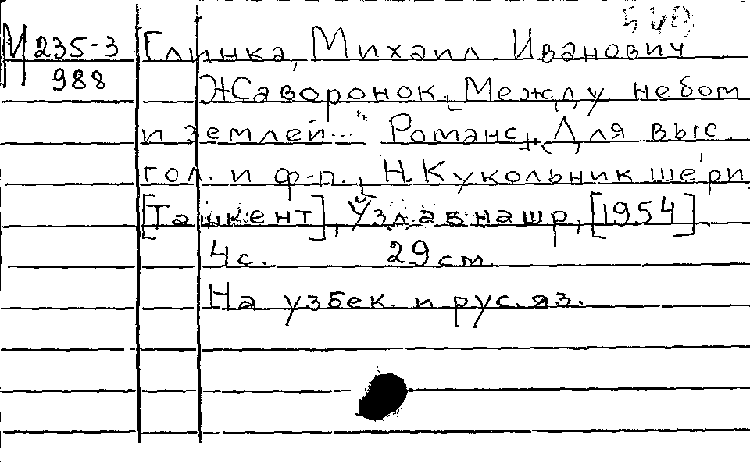 М 235-3 Глинка, Михаил Иванович
988 Жаворонок. Между небом
и землей... Романс. Для выс.
гол. и ф-п., Н. Кукольник шеъри
[Ташкент], Ўздавнашр, [1954]
4 с. 29 см.
На узбек. и рус. яз.